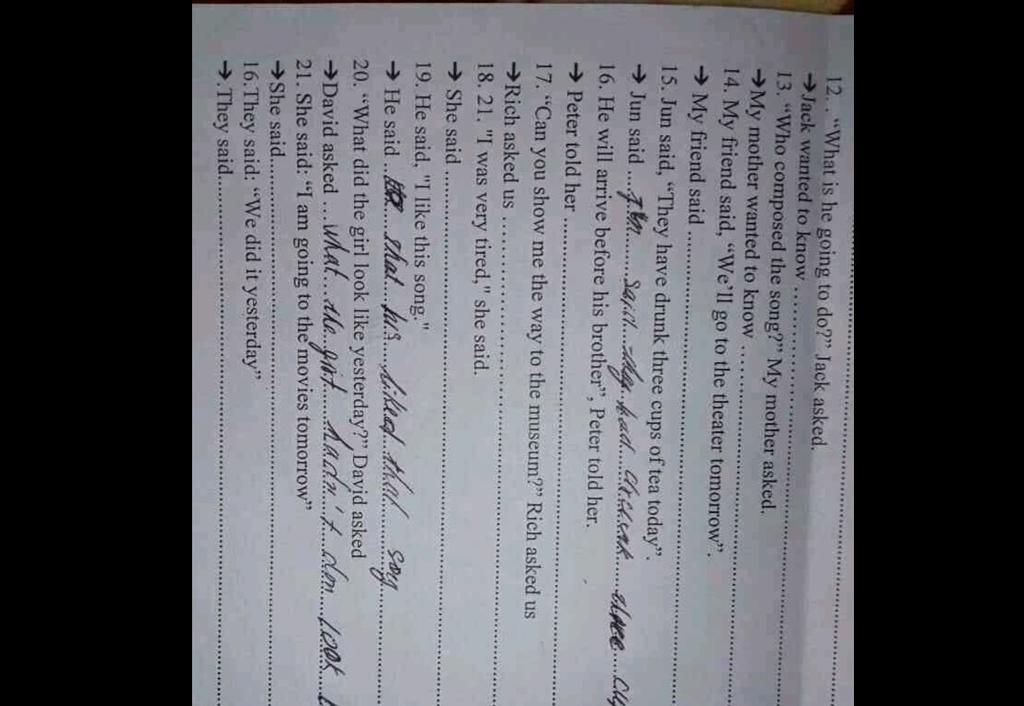 12. . "What is he going to do?" Jack asked.
➔Jack wanted to know ..............................
13. "Who composed the song?" My mother asked.
➔My mother wanted to know ..............................
14. My friend said, "We'll go to the theater tomorrow".
➔ My friend said ..............................
15. Jun said, "They have drunk three cups of tea today".
➔ Jun said ... said they had three
16. He will arrive before his brother", Peter told her.
➔ Peter told her ..............................
17. "Can you show me the way to the museum?" Rich asked us
➔Rich asked us ..............................
18. 21. "I was very tired," she said.
➔ She said ..............................
19. He said, "I like this song."
➔ He said ... that his liked that
20. "What did the girl look like yesterday?" David asked
➔David asked ... what the hadn't look
21. She said: "I am going to the movies tomorrow"
➔She said..............................
16.They said: "We did it yesterday"
➔.They said..............................